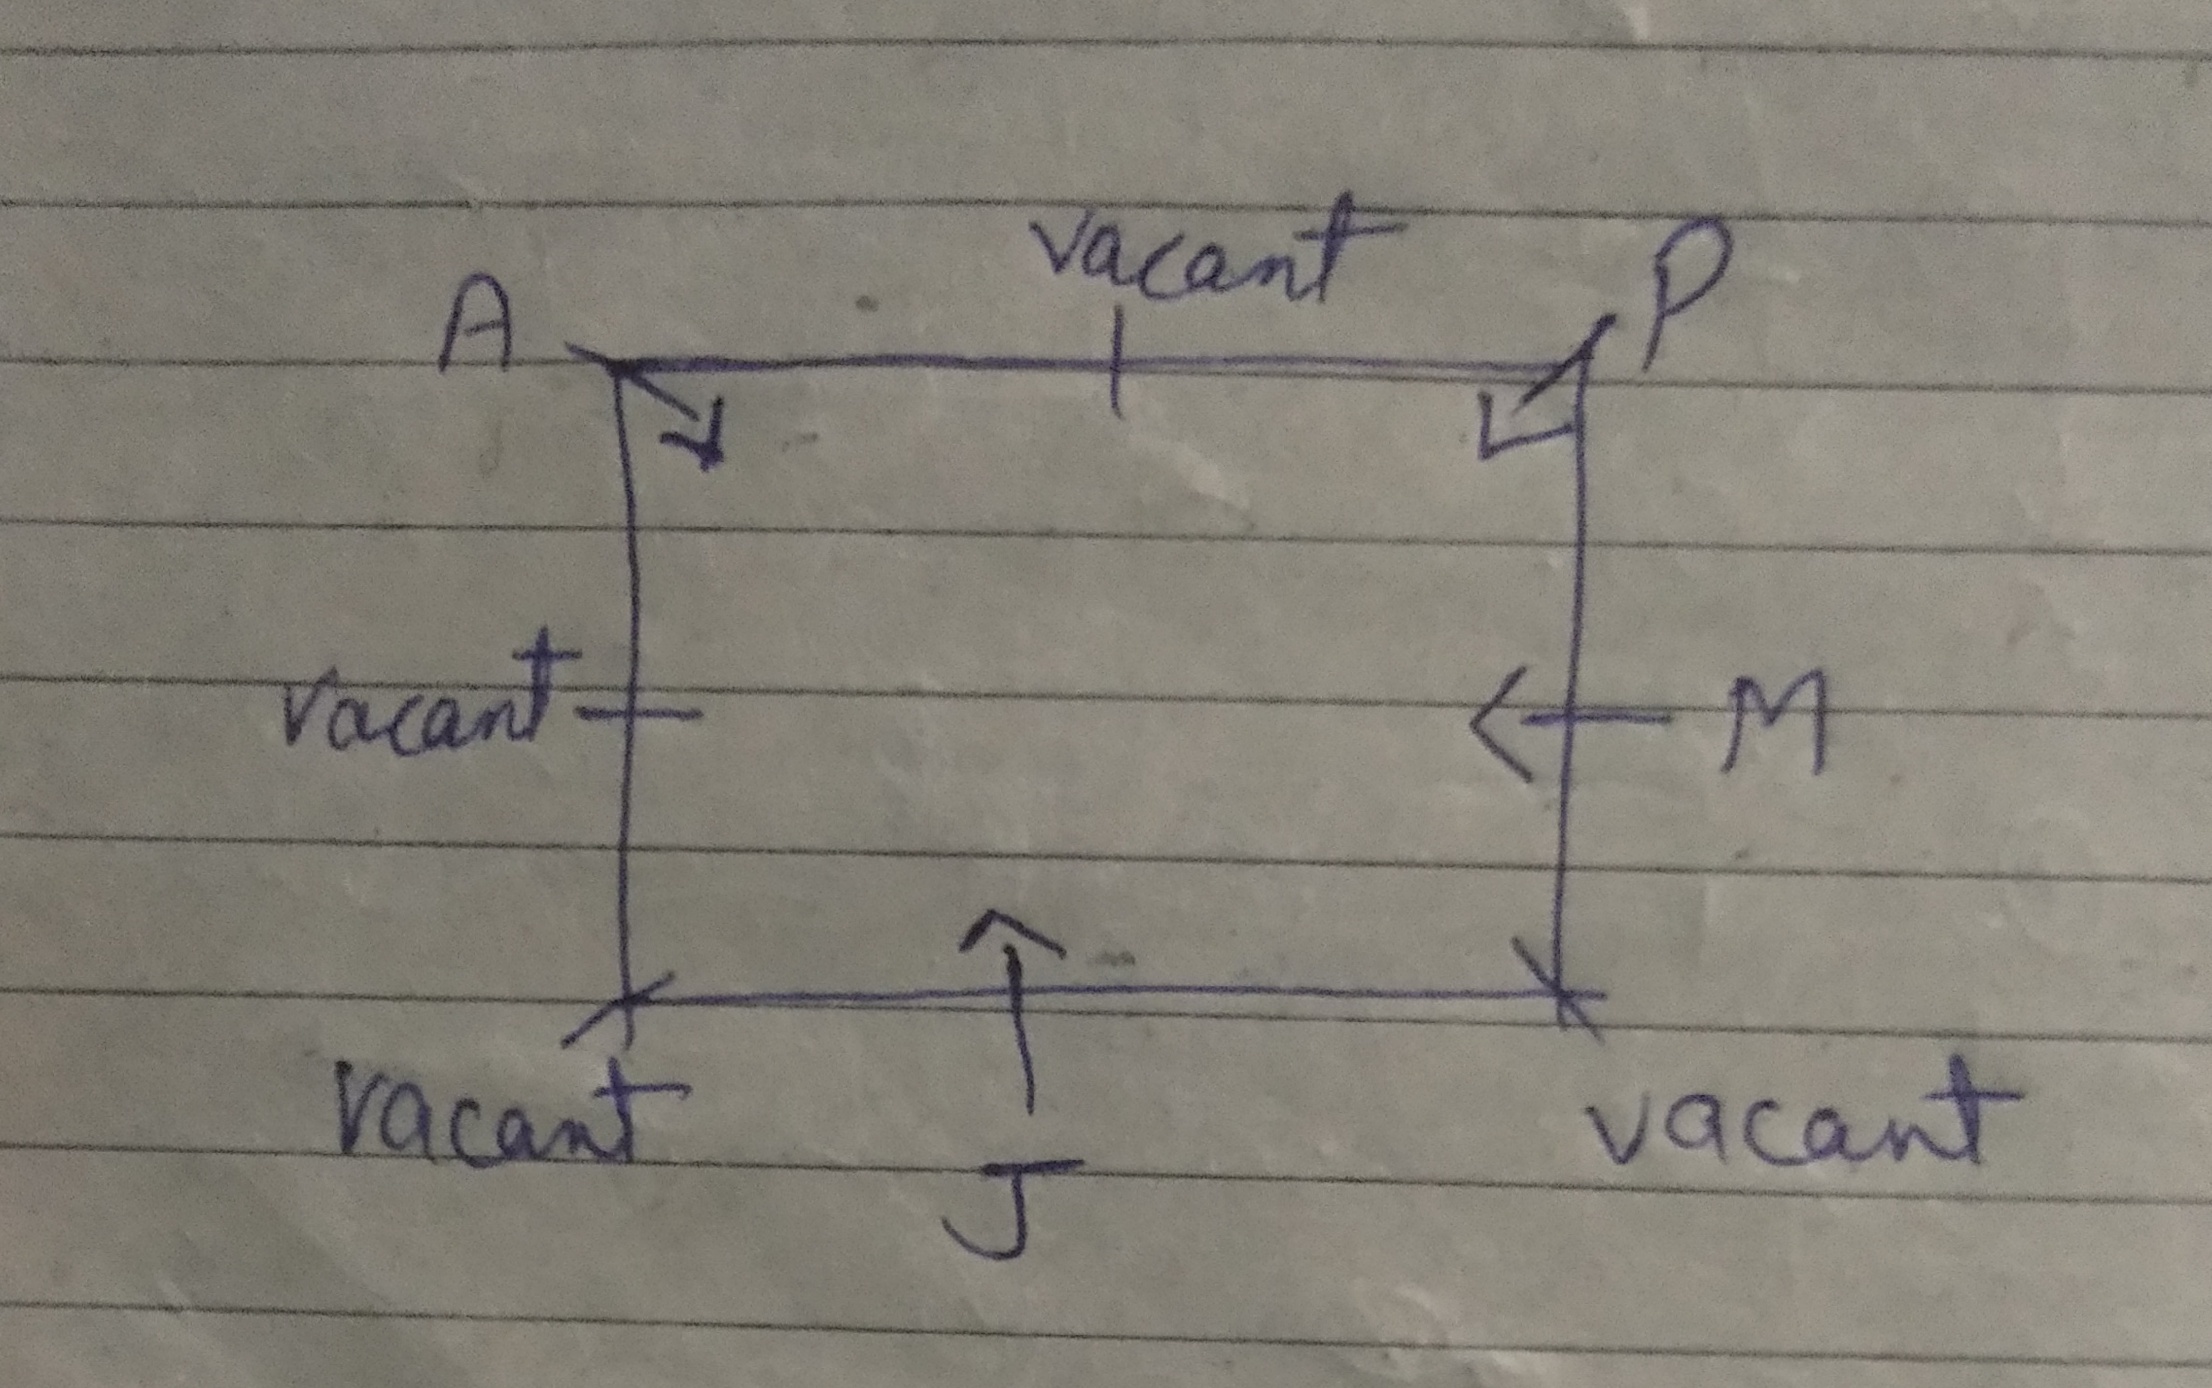 vacant
A P
vacant M
vacant vacant
J